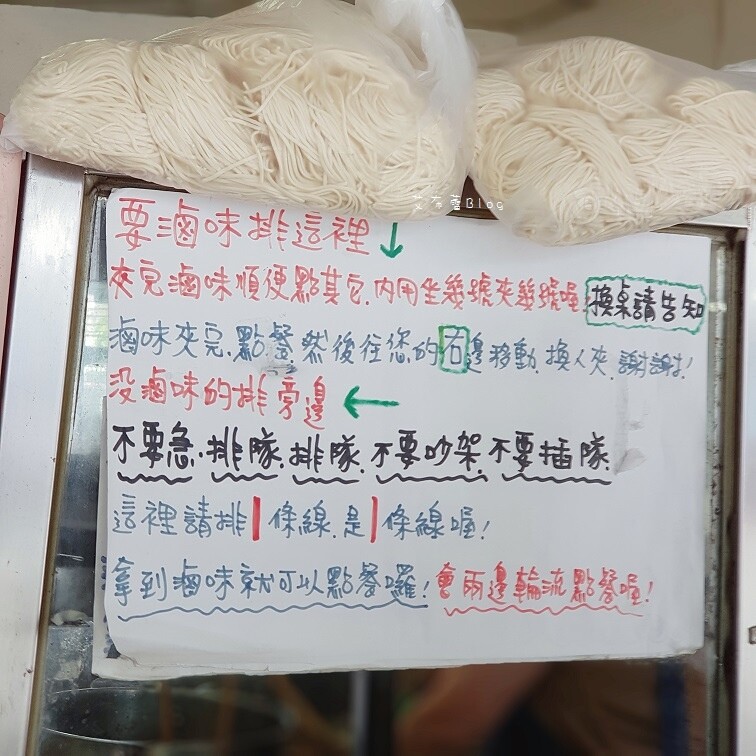 要滷味排這裡↓
夾完滷味順便點其它.內用坐幾號夾幾號喔!換桌請告知
滷味夾完.點餐然後往您的右邊移動.換人夾.謝謝!
没滷味的排旁邊←
不要急.排隊.排隊.不要吵架.不要插隊.
這裡請排1條線.是1條線喔!
拿到滷味就可以點餐囉!會兩邊輪流點餐喔!
Blog